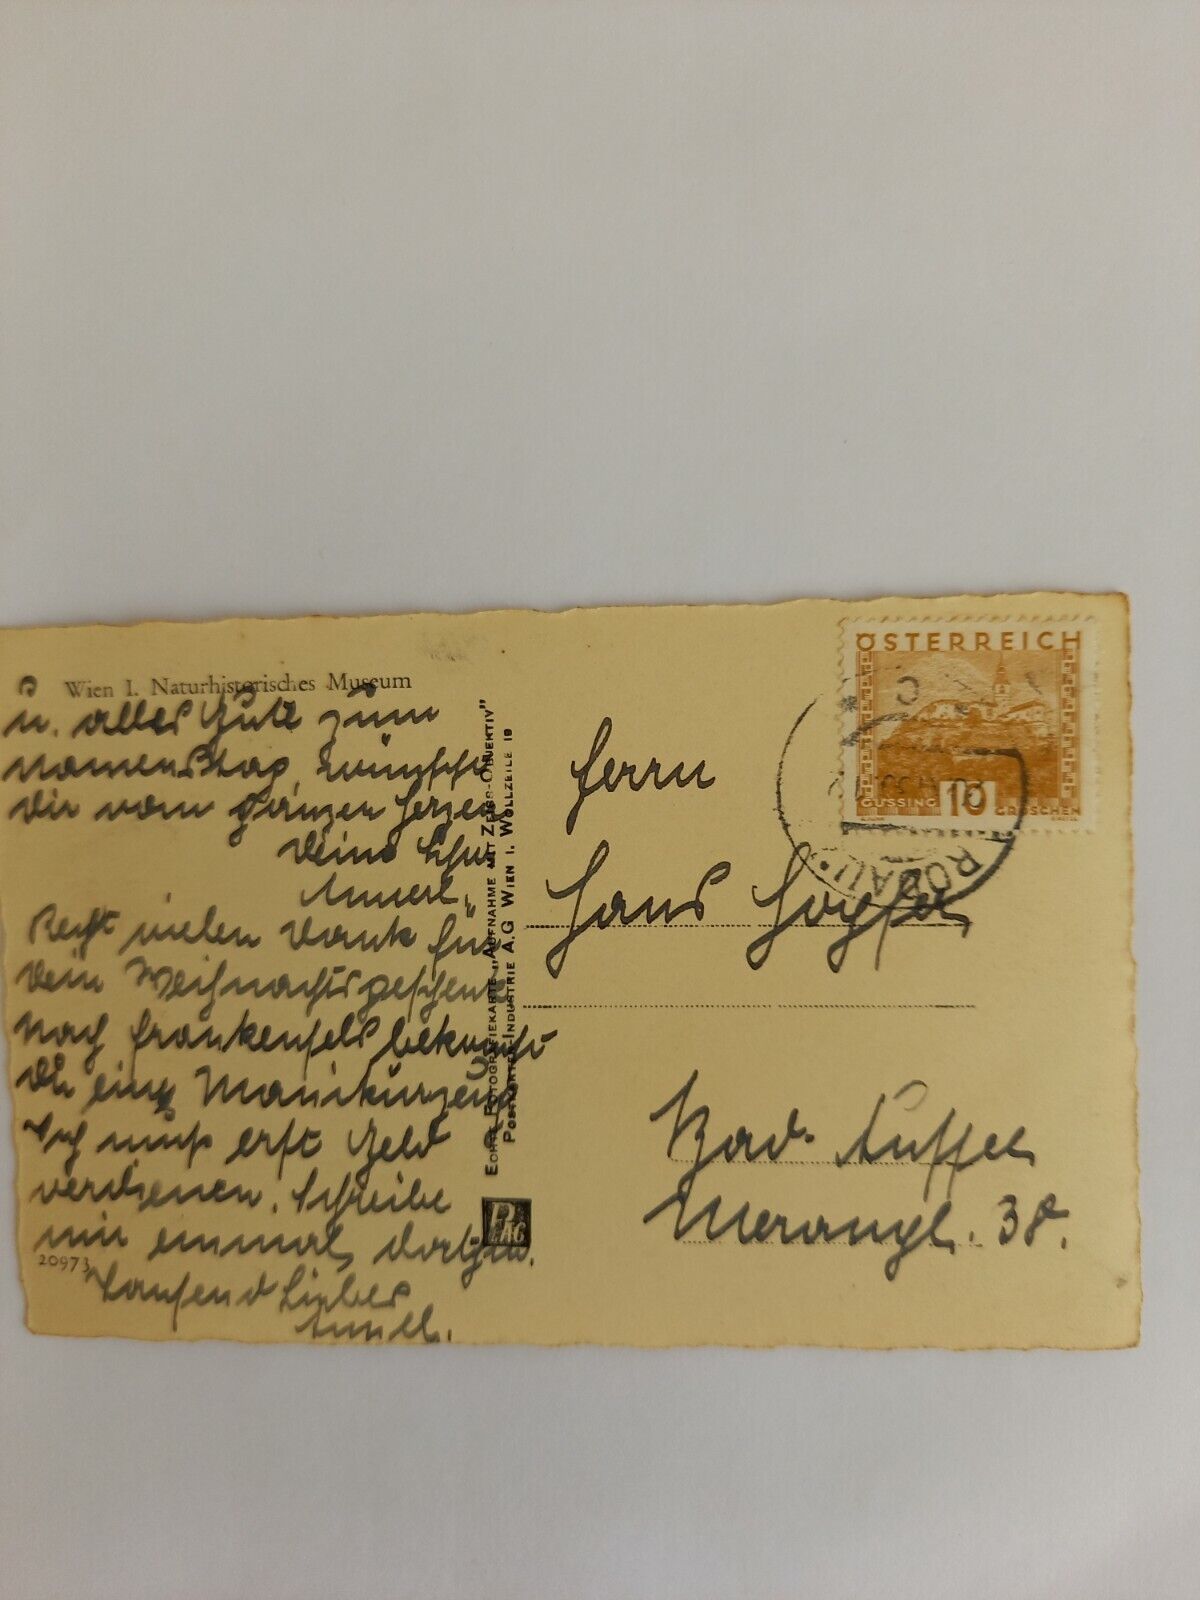 Wien I. Naturhistorisches Museum
u. alles Gute zum
Namenstag, wünscht
Dir vom ganzen Herzen
Deine
Annerl.
Recht vielen Dank für
Dein Weihnachtsgeschenk
Nach Frankenfels bekommst
Du eine
Ich muß erst Geld
verdienen. Schreibe
mir einmal,
20973
Tausend Liebes
Annerl.
ECHTE FOTOGRAFIEKARTE „AUFNAHME MIT ZEISS-OBJEKTIV"
POSTKARTEN-INDUSTRIE A.G WIEN I. WOLLZEILE 19
PAG
ÖSTERREICH
GÜSSING 10 GROSCHEN
RODAUN
Herrn
Hans
Bad Aussee
Meranpl. 38.